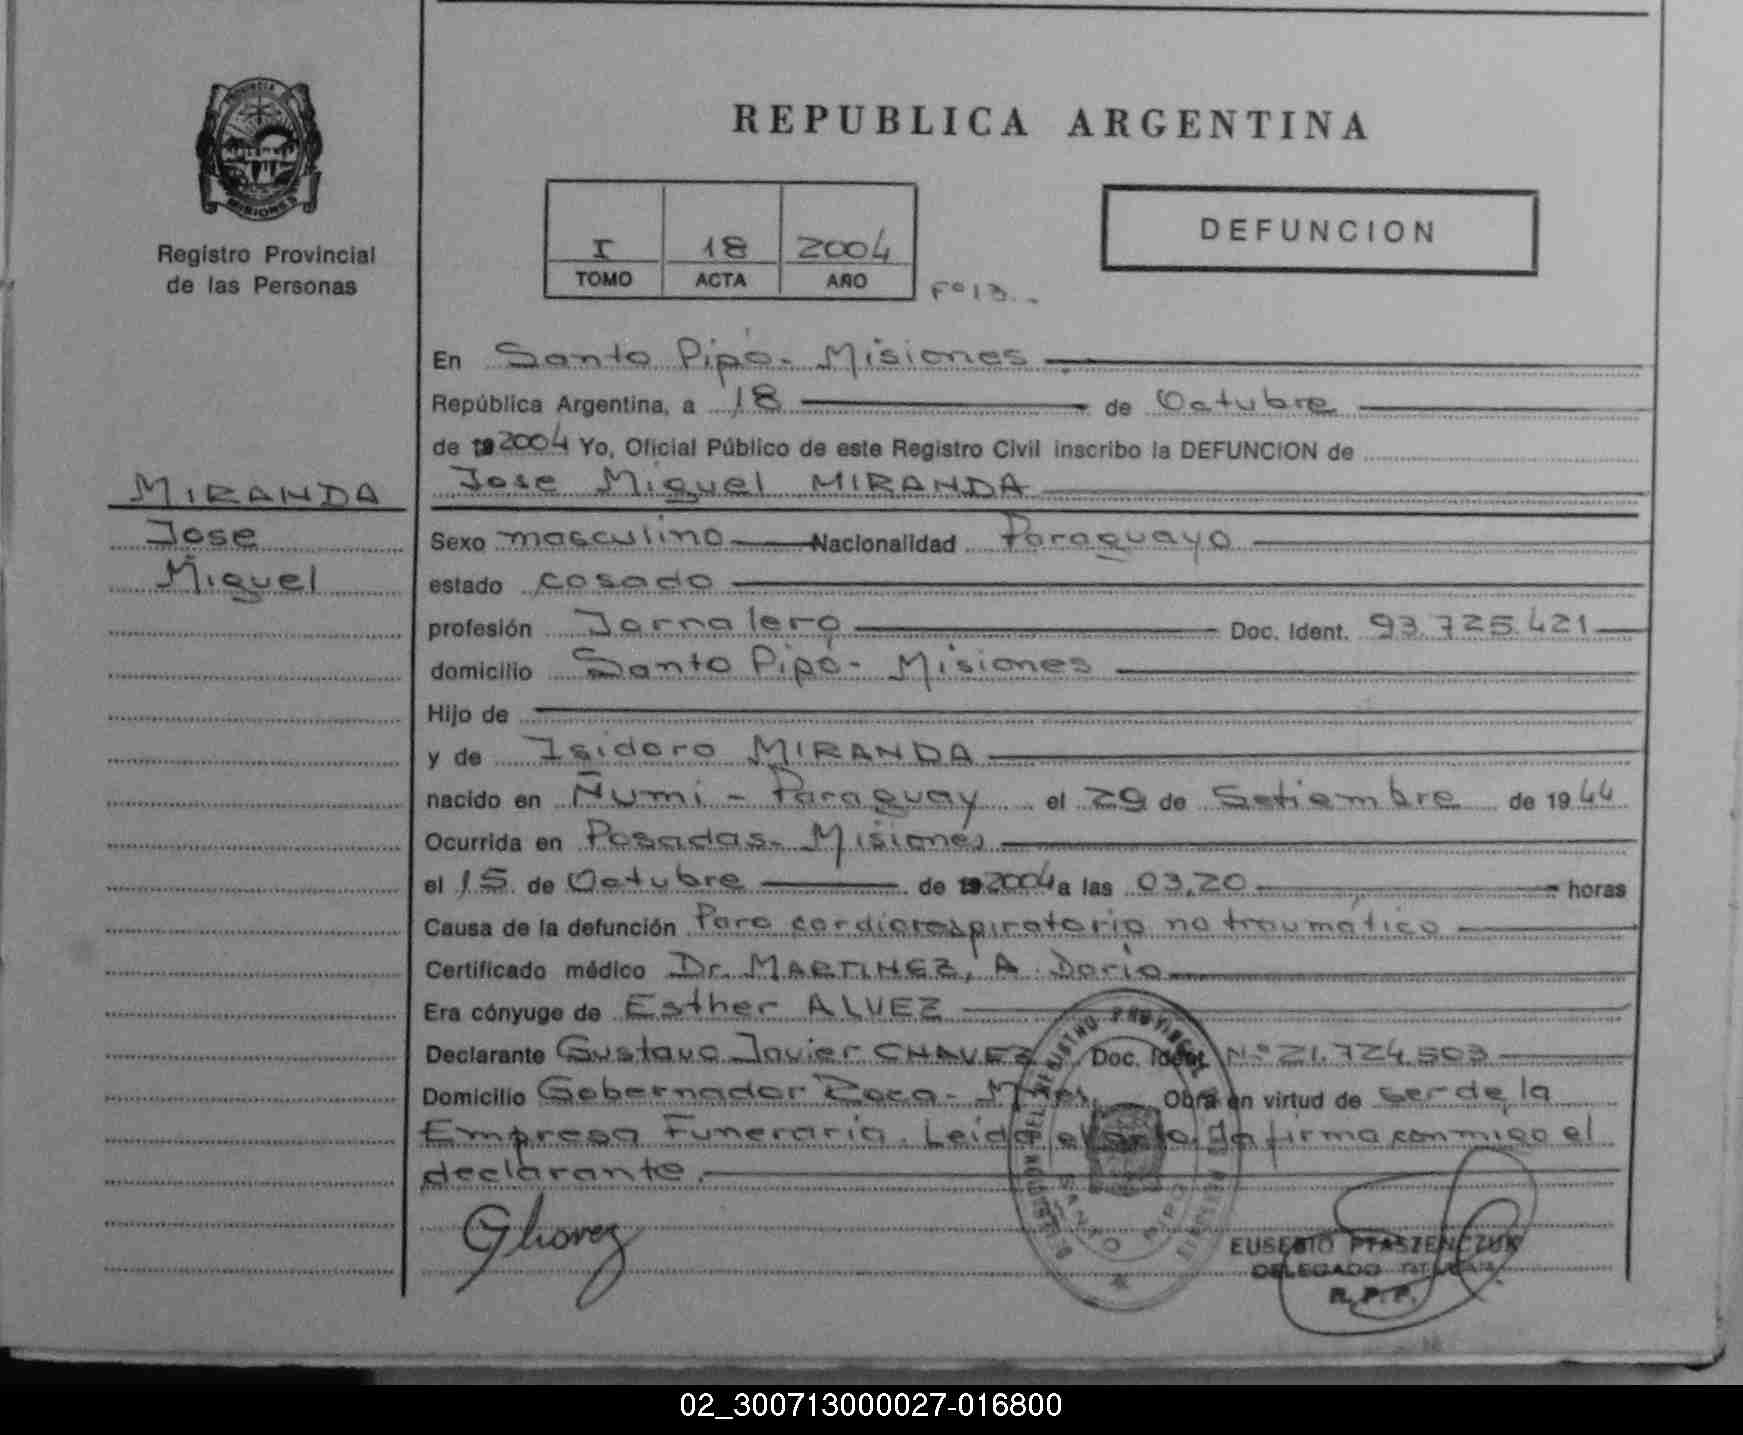 PROVINCIA DE
MISIONES
Registro Provincial
de las Personas
REPUBLICA ARGENTINA
I 18 2004
TOMO ACTA AÑO
Fº 13..
DEFUNCION
En Santo Pipó - Misiones
República Argentina, a 18 de Octubre
de 19 2004 Yo, Oficial Público de este Registro Civil inscribo la DEFUNCION de
MIRANDA
Jose Miguel MIRANDA
Jose
Miguel
Sexo masculino Nacionalidad Paraguaya
estado casado
profesión Jornalero Doc. Ident. 93.725.421
domicilio Santo Pipó - Misiones
Hijo de
y de Isidoro MIRANDA
nacido en Ñumi - Paraguay el 29 de Setiembre de 1944
Ocurrida en Posadas - Misiones
el 15 de Octubre de 19 2004 a las 03,20 horas
Causa de la defunción Paro cardiorespiratorio no traumático
Certificado médico Dr. MARTINEZ, A. Dario
Era cónyuge de Esther ALVEZ
Declarante Gustavo Javier CHAVEZ Doc. Ident. Nº 21.724.503
Domicilio Gobernador Roca - Mnes. Obra en virtud de ser de la
Empresa Funeraria. Leida el acta, la firma conmigo el
declarante.
GChavez
SANTO PIPO
EUSEBIO PTASZENCZUK
DELEGADO TITULAR
R.P.P.
02_300713000027-016800